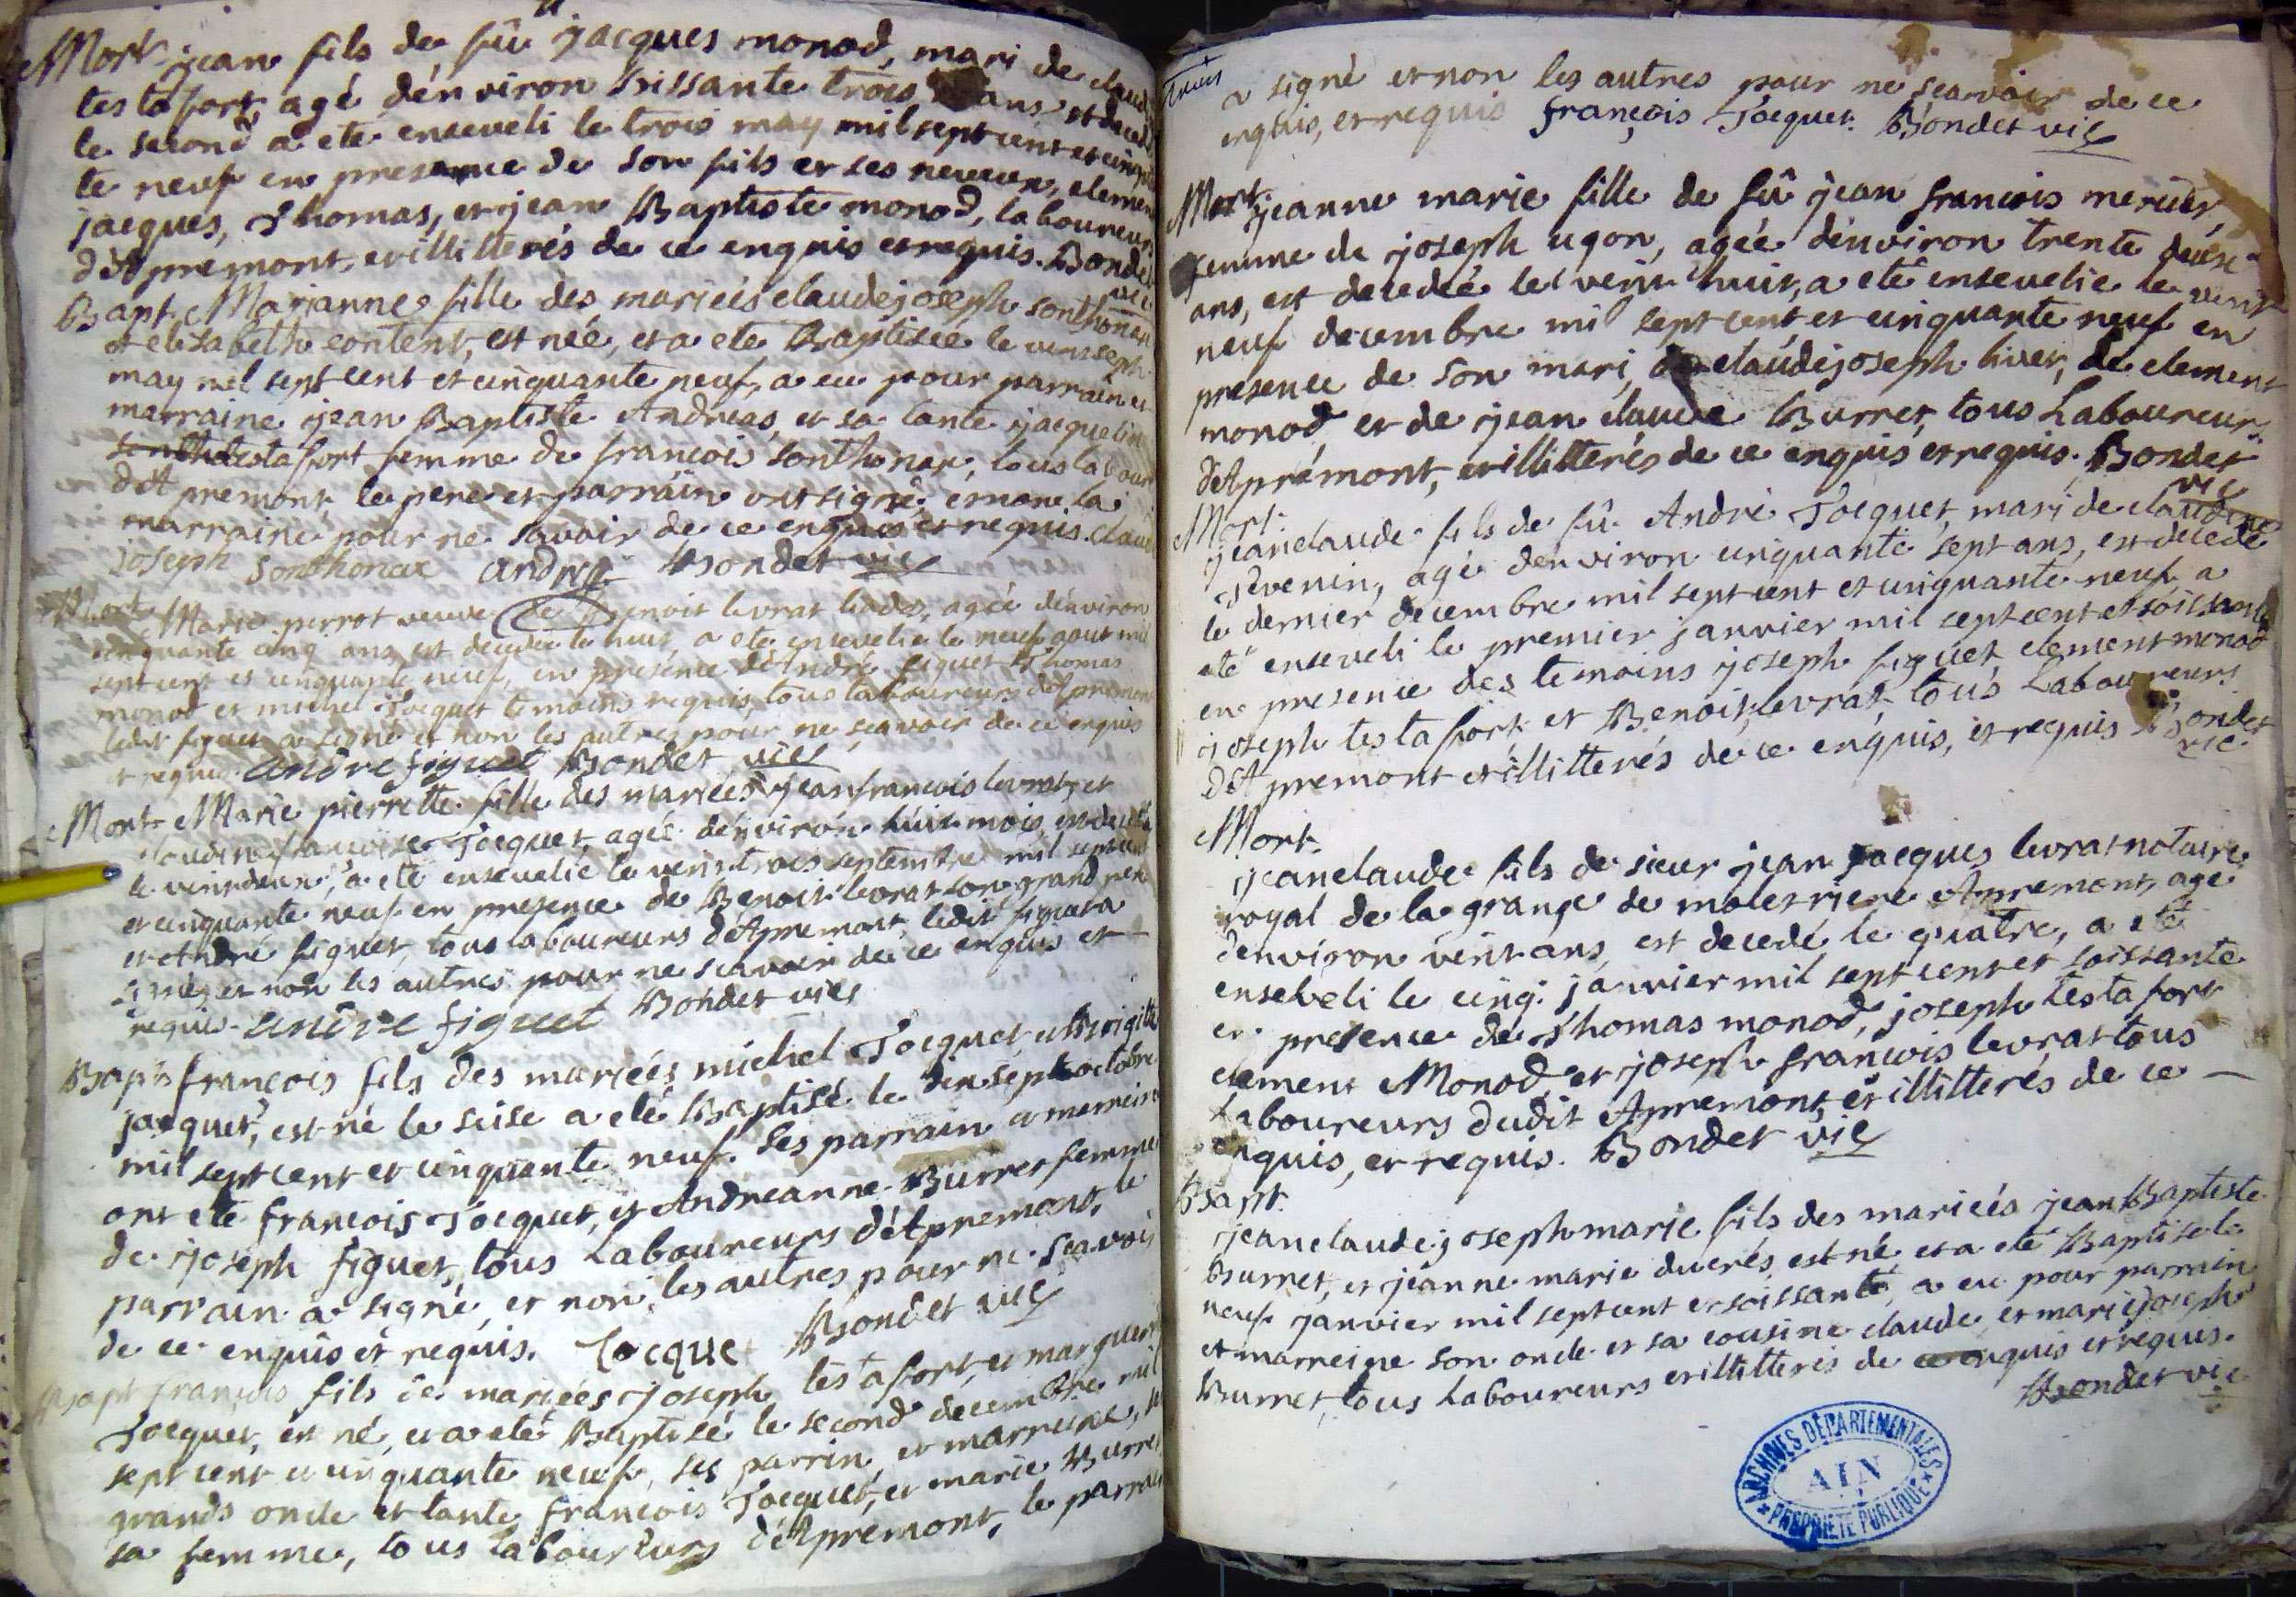 Mort jean fils de fû jacques monod, mari de
testafort, agé d'énviron sissante trois ans et
le second a eté enseveli le trois may mil sept cent et
te neuf en presence de son fils et ses neveux,
jacques, Thomas, et jean Baptiste monod, laboureurs
d'Apremont, et illitterés de ce enquis et requis. Bondet
vic
Bapt. Marjanne fille des mariées claudejoseph sonthonax
et elisabeth content, est née, et a eté Baptisée le
may mil sept cent et cinquante neuf, a eu pour parrain et
marraine jean Baptiste Andreas, et sa tante
testafort femme de francois sonthonax, tous
d'Apremont, le pere et parrain ont signé, et non la
marraine pour ne savoir de ce enquis et requis.
joseph Sonthonax Bondet vic
Mort Marie perrot veuve de Benoit levrat agée d'énviron
cinquante cinq ans, est decedée le huit, a eté ensevelie le neuf aout mil
sept cent et cinquante neuf, en presence d'André figuet Thomas
monod et michel Jocquet temoins requis, tous laboureurs d'Apremont
ledit figuet a signé et non les autres pour ne sçavoir de ce enquis
et requis. andre figuet Bondet vic
Mort Marie pierrette fille des mariées jeanfrancois levrat, et
francoise Jocquet, agée d'énviron huit mois, est
le a eté ensevelie le vint trois septembre mil sept cent
et cinquante neuf en presence de Benoit levrat son grand pere
et André figuet, tous laboureurs d'Apremont, ledit figuet a
signé, et non les autres pour ne scavoir de ce enquis et
requis. andre figuet Bondet vic
Bapt. francois fils des mariées michel Jocquet et
jacquet, est né le seise a eté Baptisé le dixsept octobre
mil sept cent et cinquante neuf. Ses parrain et marreine
ont eté francois Jocquet, et Andreanne Burret femme
de joseph figuet, tous Laboureurs d'Apremont, le
parrain a signé, et non les autres pour ne sçavoir
de ce enquis et requis. Bondet vic
Bapt francois fils de mariées joseph testafort, et
Jocquet, est né, et a eté Baptisé le second decembre mil
sept cent et cinquante neuf, ses parrin, et marreine,
grands oncle et tante francois Jocquet, et marie Burret
sa femme, tous laboureurs d'Apremont, le parrain
a signé et non les autres pour ne scavoir de ce
enquis, et requis françois Jocquet. Bondet vic
Mort jeanne marie fille de fû jean francois mercier,
femme de joseph ugon, agée d'énviron trente
ans, est decedée le vint huit, a eté ensevelie le vint
neuf decembre mil sept cent et cinquante neuf en
presence de son mari, claudejoseph livet, de clement
monod, et de jean claude Burret, tous Laboureurs
d'Aprémont, et illitterés de ce enquis et requis. Bondet
vic
Mort.
jeanclaude fils de fû André Jocquet, mari de claudine
agé d'énviron cinquante sept ans, est decedé
le dernier decembre mil sept cent et cinquante neuf a
eté enseveli le premier janvier mil sept cent et soissante
en presence des temoins joseph figuet, clement monod
joseph testafort et Benoit levrat, tous Laboureurs
d'Apremont et illitterés de ce enquis, et requis Bondet
vic
Mort.
jeanclaude fils de sieur jean jacques levrat notaire
royal de la grange de Apremont, agé
d'environ vint ans, est decedé le quatre, a eté
enseveli le cinq janvier mil sept cent et soissante
en presence de Thomas monod, joseph testafort
clement Monod, et joseph francois levrat tous
Laboureurs dudit Apremont, et illitterés de ce
enquis, et requis. Bondet vic
Bapt.
jeanclaudejosephmarie fils des mariées jean Baptiste
Burret, et jeanne marie est né, et a eté Baptisé le
neuf janvier mil sept cent et soissante, a eu pour parrain
et marreine son oncle et sa cousine claude, et marie joseph
Burret, tous Laboureurs et illitterés de ce enquis et requis.
Bondet vic
ARCHIVES DÉPARTEMENTALES
AIN
PROPRIÉTÉ PUBLIQUE